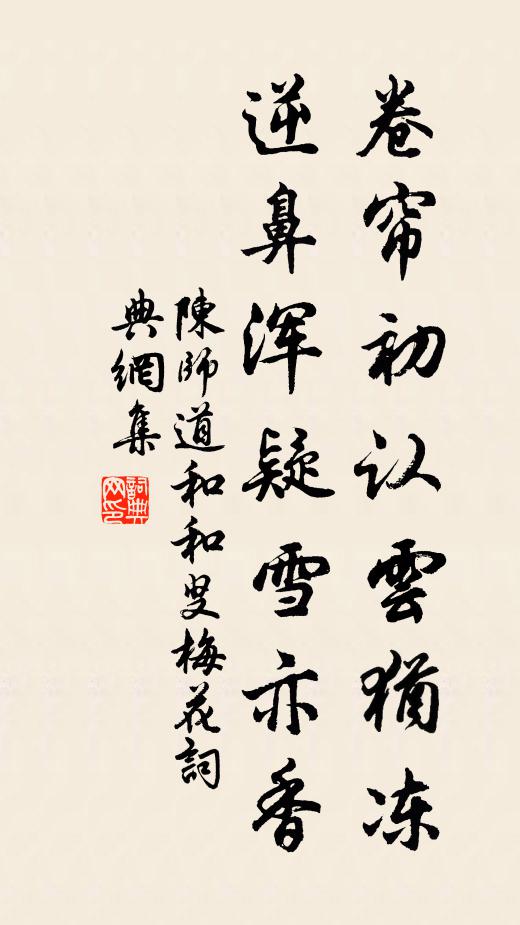 卷帘初认雲犹冻
逆鼻浑疑雪亦香
陳師道和和叟梅花詞
典網集
詞典网印